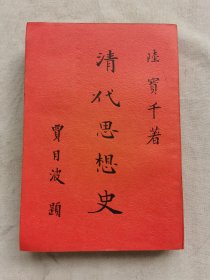 陸寶千著
清代思想史
賈目波 題